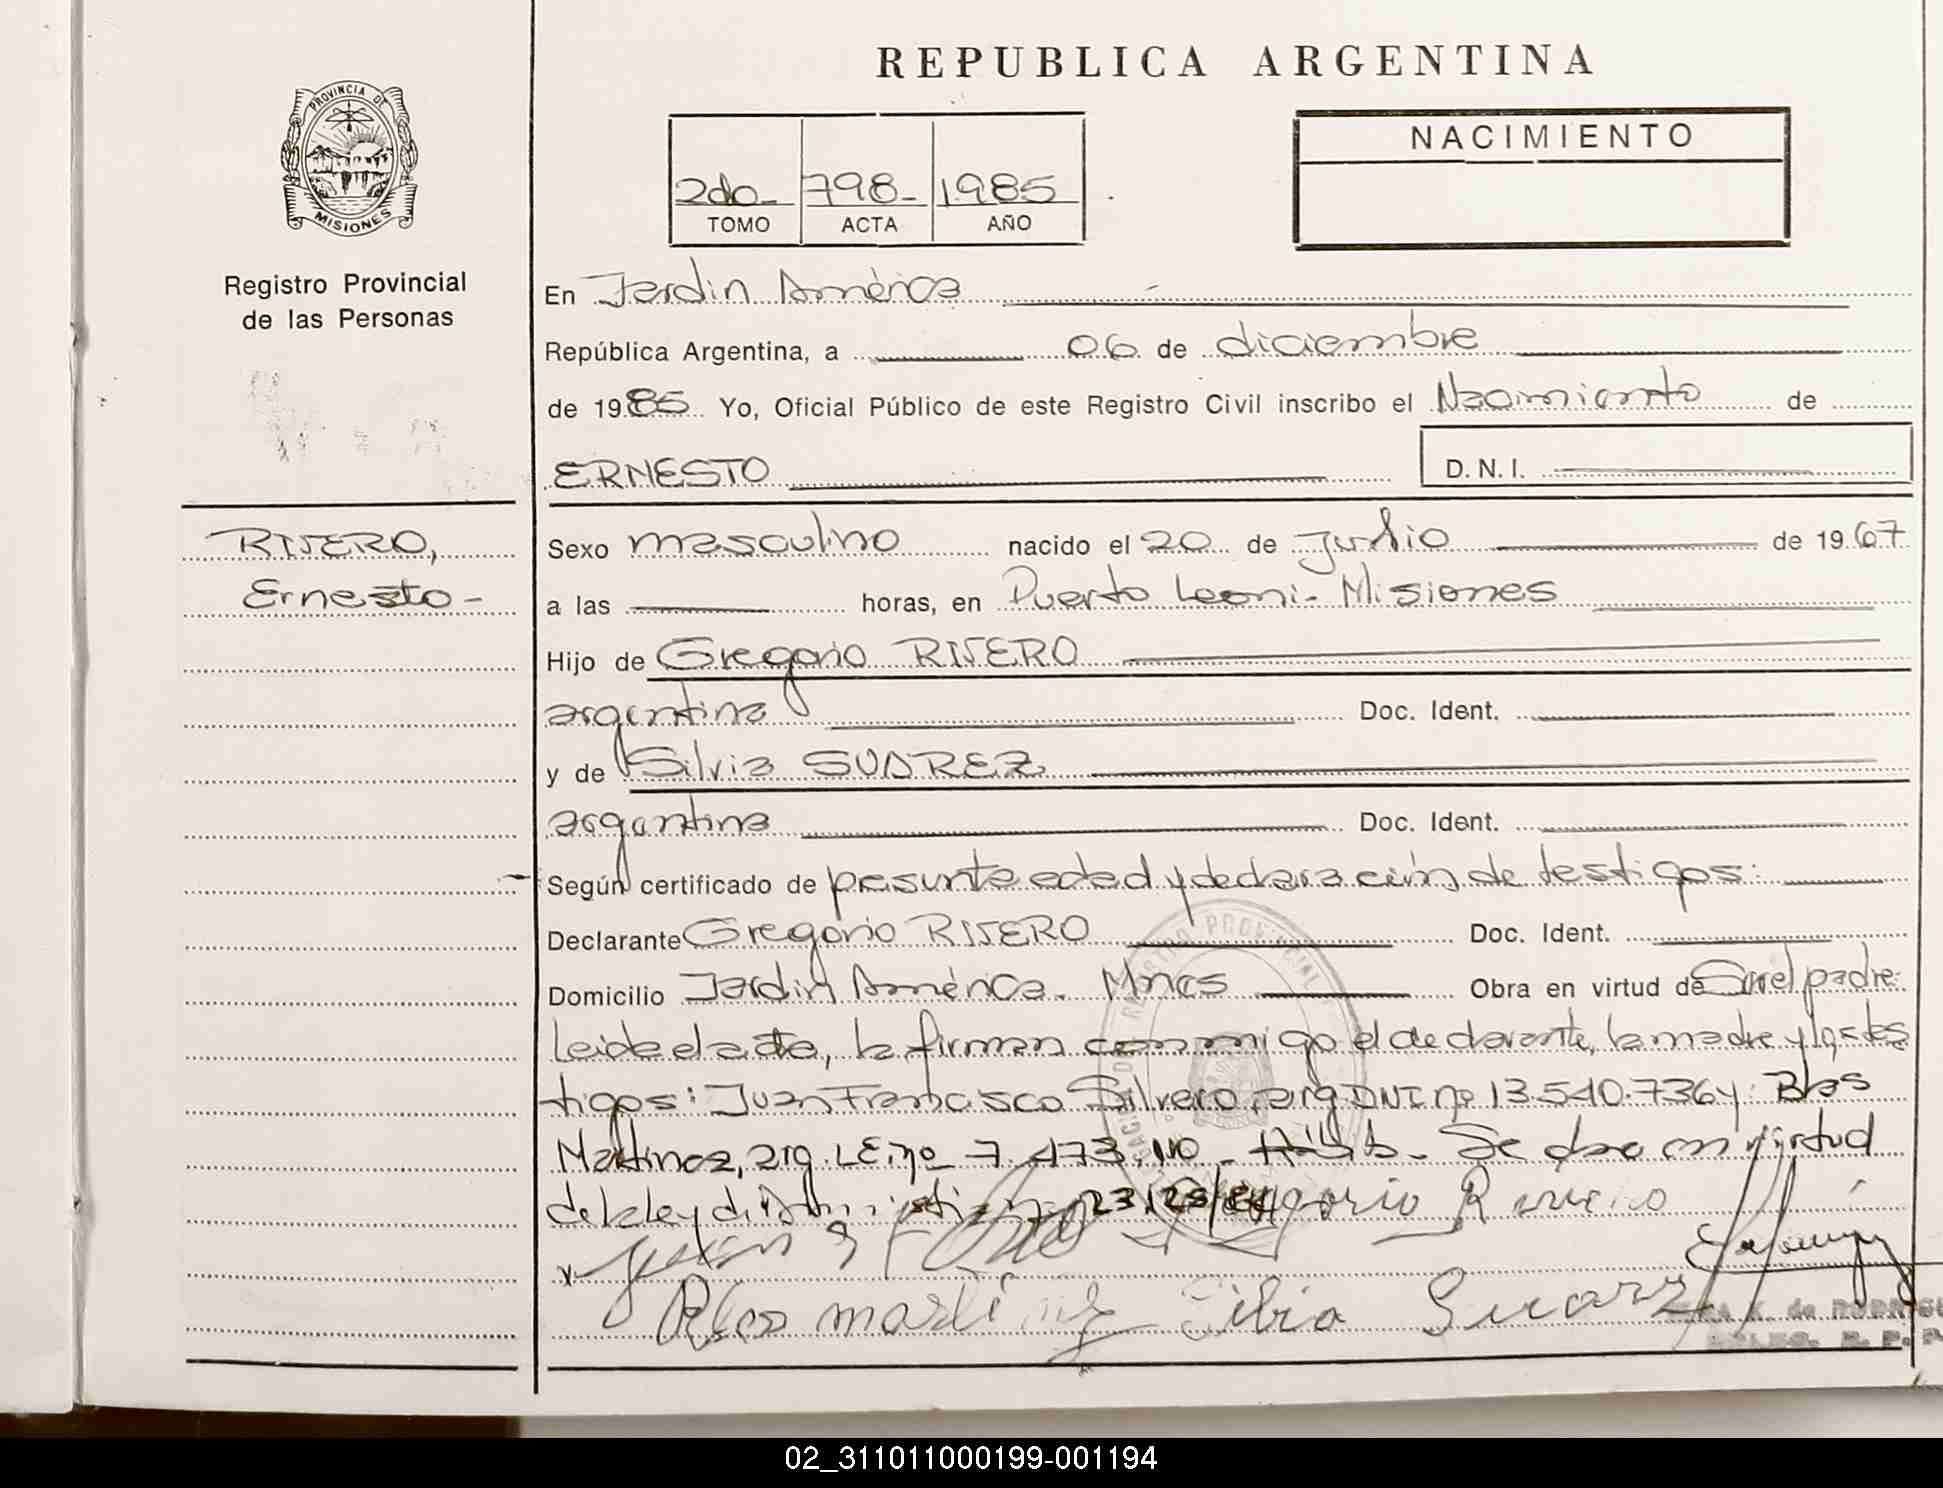 REPUBLICA ARGENTINA
PROVINCIA DE
MISIONES
Registro Provincial
de las Personas
2do- 798- 1985
TOMO ACTA AÑO
NACIMIENTO
En Jardin América
República Argentina, a 06 de diciembre
de 1985 Yo, Oficial Público de este Registro Civil inscribo el Nacimiento de
ERNESTO D.N.I.
RIVERO,
Ernesto-
Sexo masculino nacido el 20 de Julio de 1967
a las horas, en Puerto Leoni- Misiones
Hijo de Gregorio RIVERO
argentina Doc. Ident.
y de Silvia SUAREZ
argentina Doc. Ident.
Según certificado de presunta edad y declaración de testigos:
Declarante Gregorio RIVERO Doc. Ident.
Domicilio Jardin América. Mnes Obra en virtud de Ser el padre
Leida el acta, la firman conmigo el declarante, la madre y los tes
tigos: Juan Francisco Silvero, arg. DNI nº 13.540.736 y: Blas
Martinez, arg. LE. nº 7.473.110 - Se obra en virtud
de la ley de Amnistia 23.
Gregorio
Blas martinez Silvia Suarez
02_311011000199-001194